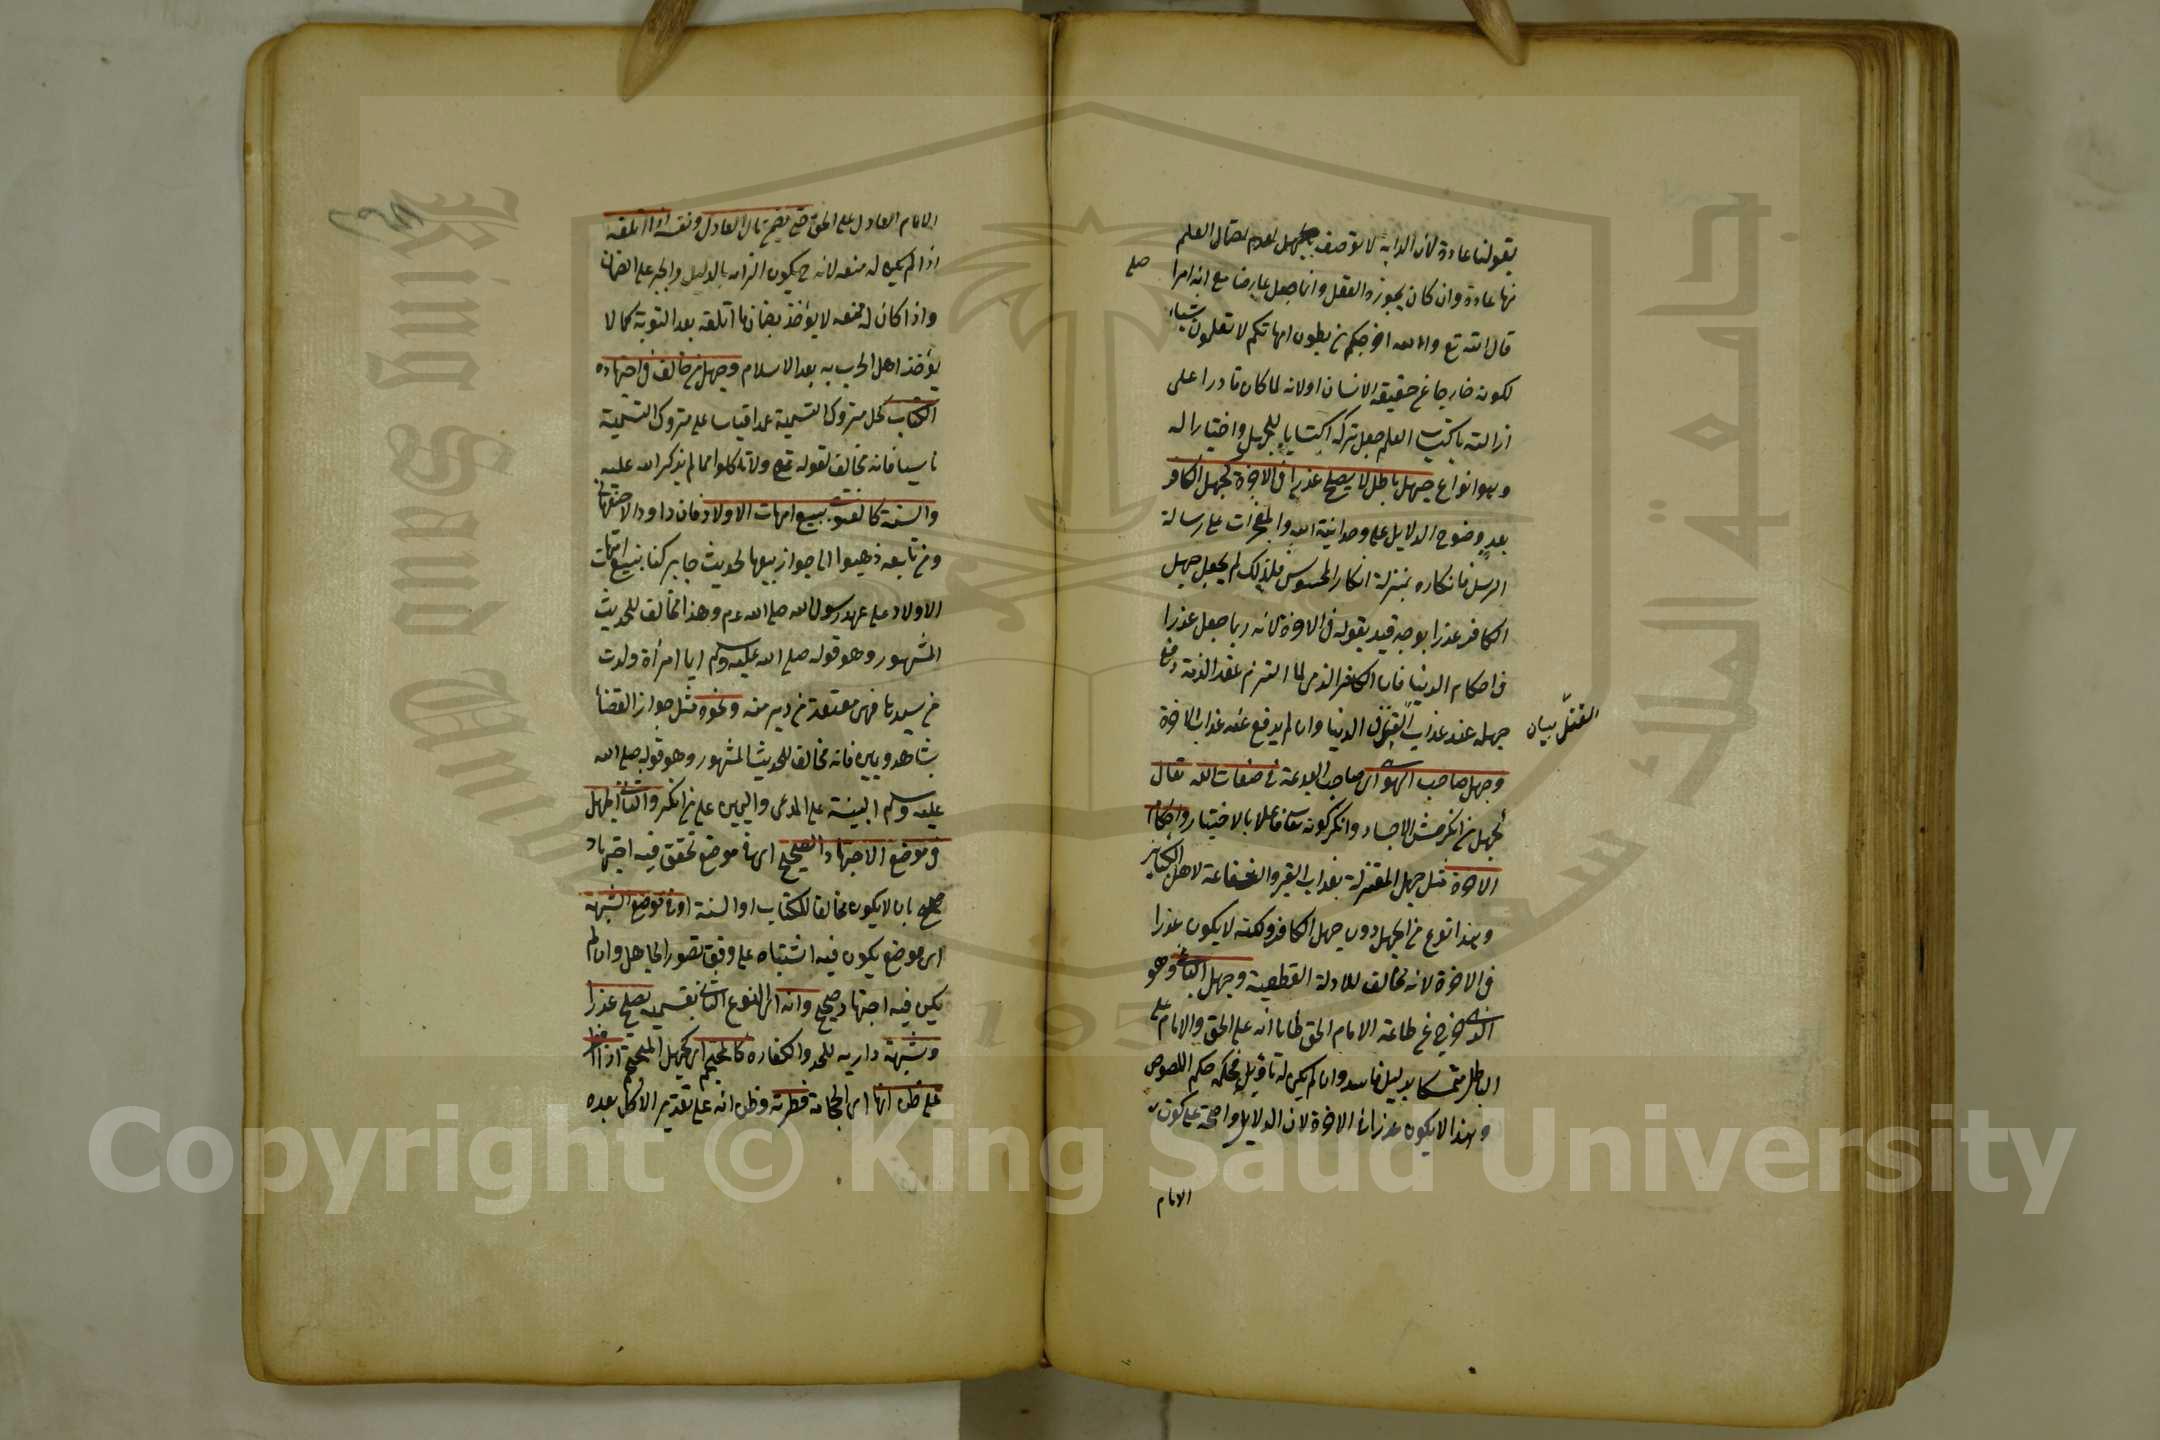 بقولنا عادة لان الدابة لا توصف بالجهل لعدم احتمال العلم
منها عادة وان كان يجوزه العقل وانما جعل عارضا مع انه امر اصلي
قال الله تع والله اخرجكم من بطون امهاتكم لا تعلمون شيئا
لكونه خارجا عن حقيقة الانسان او لانه لما كان قادرا على
ازالته باكتساب العلم جعل تركه اكتسابا للجهل واختيارا له
وهو انواع جهل باطل لا يصلح عذرا في الاخرة كجهل الكافر
بعد وضوح الدلايل على وحدانية الله والمعجزات على رسالة
الرسل فانكاره بمنزلة انكار المحسوس فلذلك لم يجعل جهل
الكافر عذرا بوجه قيد بقوله في الاخرة لانه ربما جعل عذرا
في احكام الدنيا فان الكافر الذمي لما التزم عقد الذمة دفع
جهله عنه عذاب القتل في الدنيا وان لم يدفع عنه عذاب الاخرة
القتل بيان
وجهل صاحب الهوى اي صاحب البدعة في صفات الله تعالى
كجهل من انكر حشر الاجساد وانكر كونه تعالى فاعلا بالاختيار واحكام
الاخرة مثل جهل المعتزلة بعذاب القبر والشفاعة لاهل الكبائر
وهذا نوع من الجهل دون جهل الكافر ولكنه لا يكون عذرا
في الاخرة لانه مخالف للادلة القطعية وجهل الباغي وهو
الذي خرج عن طاعة الامام الحق ظانا انه على الحق والامام على
الباطل متمسكا بدليل فاسد وان لم يكن له تاويل فحكمه حكم اللصوص
وهذا لا يكون عذرا في الاخرة لان الدلايل واضحة على كون
الامام
الامام العادل على الحق حتى يضمن مال العادل ونفسه اذا اتلفه
اذا لم يكن له منعة لانه ح يكون الزامه بالدليل والجبر على الضمان
واذا كان له منعة لا يؤخذ بضمان ما اتلفه بعد التوبة كما لا
يؤخذ اهل الحرب به بعد الاسلام وجهل من خالف في اجتهاده
الكتاب كحل متروك التسمية عمدا قياسا على متروك التسمية
ناسيا فانه مخالف لقوله تع ولا تاكلوا مما لم يذكر اسم الله عليه
والسنة كالفتوى ببيع امهات الاولاد فان داود الاصفهاني
ومن تابعه ذهبوا الى جواز بيعها لحديث جابر كنا نبيع امهات
الاولاد على عهد رسول الله صلى الله عم وهذا مخالف للحديث
المشهور وهو قوله صلى الله عليه وسلم ايما امرأة ولدت
من سيدها فهي معتقة عن دبر منه ونحوه مثل جواز القضا
بشاهد ويمين فانه مخالف للحديث المشهور وهو قوله صلى الله
عليه وسلم البينة على المدعي واليمين على من انكر والثاني الجهل
في موضع الاجتهاد الصحيح اي في موضع تحقق فيه اجتهاد
صحيح بان لا يكون مخالفا للكتاب او السنة او في موضع الشبهة
اي موضع يكون فيه اشتباه على وفق تصور الجاهل وان لم
يكن فيه اجتهاد صحيح وانه اي النوع الثاني بقسميه يصلح عذرا
وشبهة دارئة للحد والكفارة كالمحتجم اي كجهل المحتجم اذا افطر
على ظن انها اي الحجامة فطرته وظن انه على تقدير الاكل بعده
Copyright © King Saud University